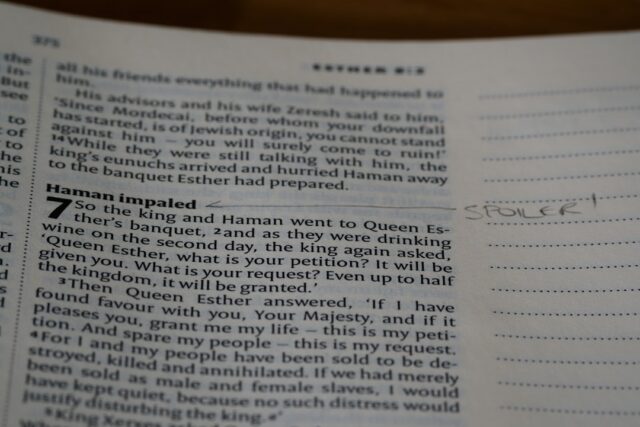 375
all his friends everything that had happened to
him.
His advisors and his wife Zeresh said to him,
'Since Mordecai, before whom your downfall
has started, is of Jewish origin, you cannot stand
against him – you will surely come to ruin!'
14 While they were still talking with him, the
king's eunuchs arrived and hurried Haman away
to the banquet Esther had prepared.
Haman impaled
SPOILER!
7 So the king and Haman went to Queen Es-
ther's banquet, 2 and as they were drinking
wine on the second day, the king again asked,
'Queen Esther, what is your petition? It will be
given you. What is your request? Even up to half
the kingdom, it will be granted.'
3 Then Queen Esther answered, 'If I have
found favour with you, Your Majesty, and if it
pleases you, grant me my life – this is my peti-
tion. And spare my people – this is my request.
4 For I and my people have been sold to be de-
stroyed, killed and annihilated. If we had merely
been sold as male and female slaves, I would
have kept quiet, because no such distress would
justify disturbing the king.'
5 King Xerxes asked
the
in-
But
see
to
of
to
he
his
he